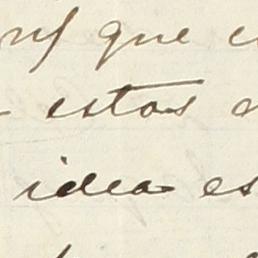 que
estos
idea es